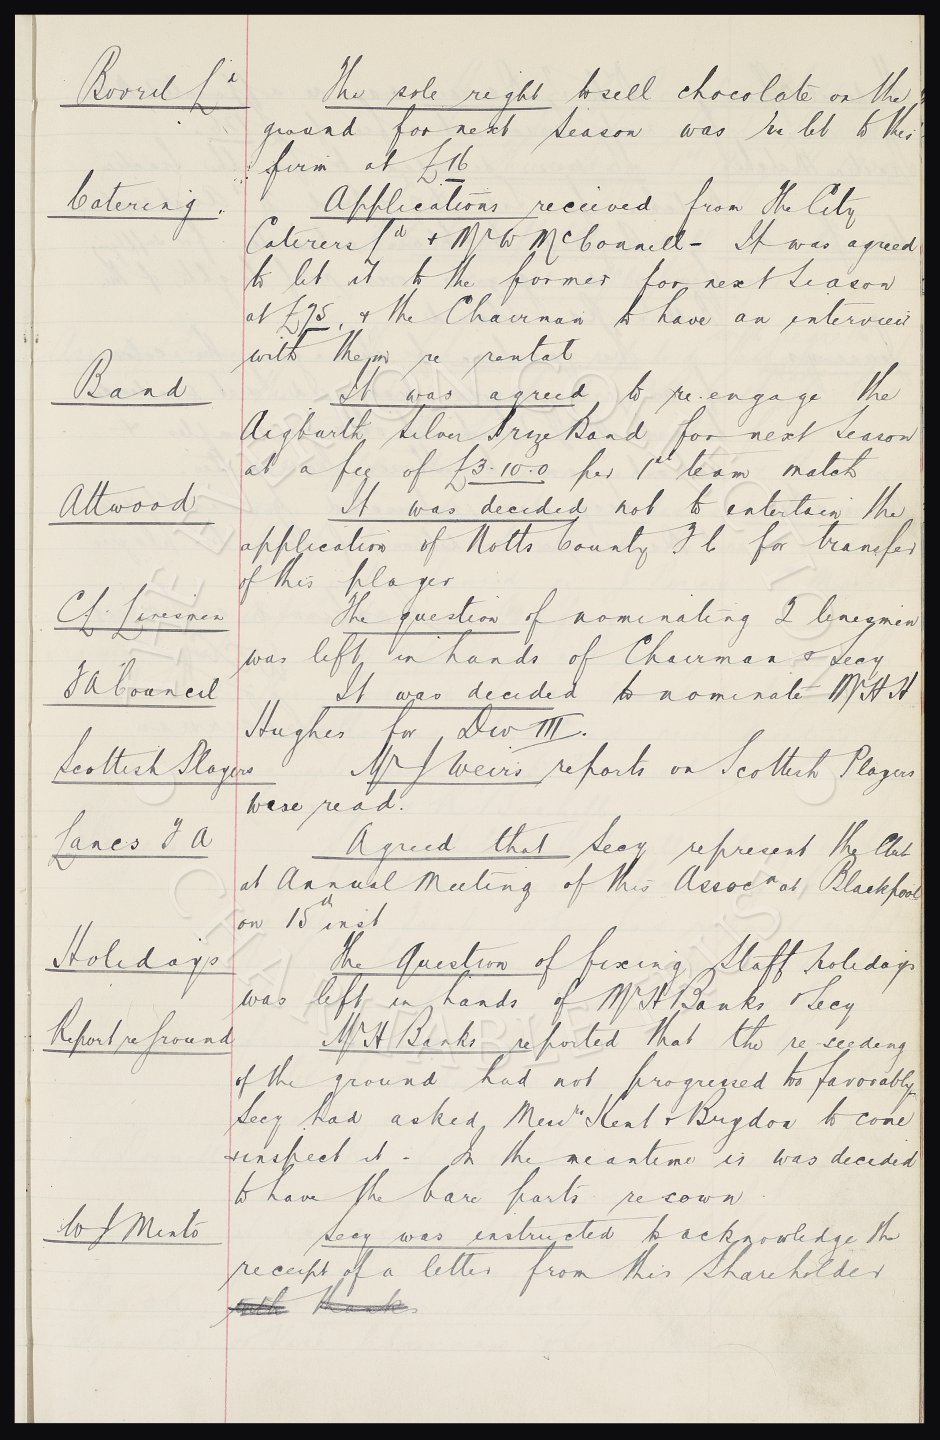 Bovril Ld
The sole right to sell chocolate on the
ground for next season was re let to this
firm at £16
Catering.
Applications received from the City
Caterers Ld + Mr W McConnell - It was agreed
to let it to the former for next season
at £75, + the Chairman to have an interview
with them re rental
Band
It was agreed to re-engage the
Aigburth Silver Prize Band for next season
at a fee of £3.10.0 per 1st team match
Attwood
It was decided not to entertain the
application of Notts County F C for transfer
of this player
CL. Linesmen
The question of nominating 2 linesmen
was left in hands of Chairman & Secy
FA Council
It was decided to nominate Mr H H
Hughes for Div III.
Scottish Players
Mr J Weirs reports on Scottish Players
were read.
Lancs F A
Agreed that Secy represent the Club
at Annual Meeting of this Assocn at Blackpool
on 15th inst
Holidays
The Question of fixing Staff holidays
was left in hands of Mr H Banks & Secy
Report re Ground
Mr H Banks reported that the re-seeding
of the ground had not progressed too favorably
Secy had asked Messrs Kent & Brydon to come
+ inspect it - In the meantime is was decided
to have the bare parts re sown
W J Minto
Secy was instructed to acknowledge the
receipt of a letter from this Shareholder
with thanks.